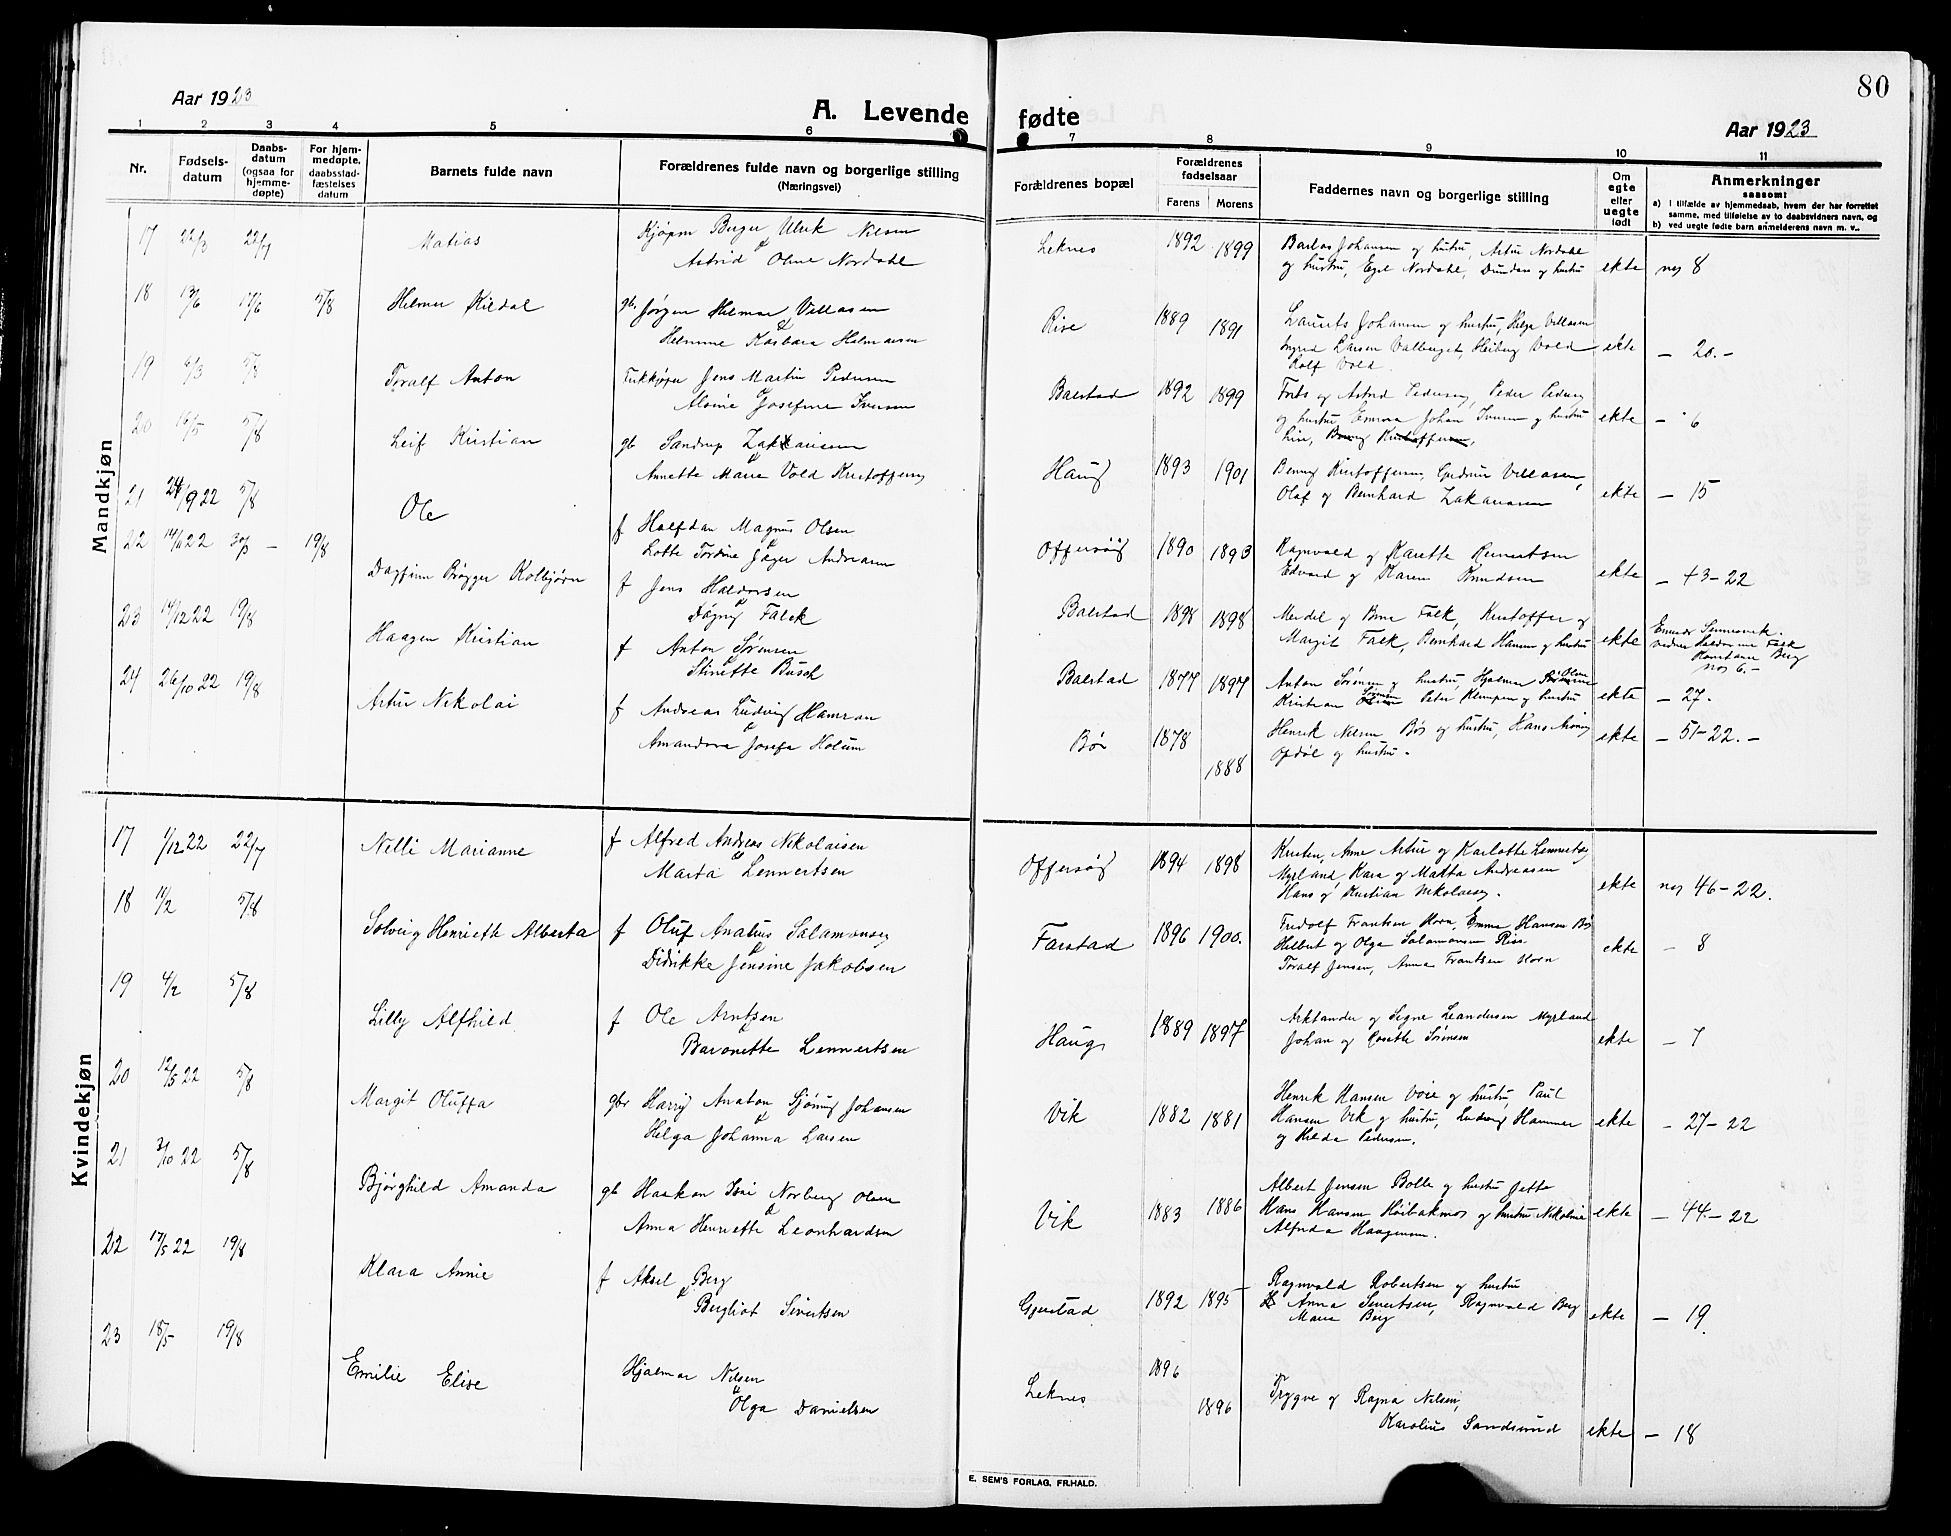 80
Aar 1923
A. Levende fødte
Aar 1923
1 2 3 4 5 6 7 8 9 10 11
Nr.
Fødselsdatum
Daabsdatum (ogsaa for hjemmedøpte)
For hjemmedøpte, daabsstadfæstelses datum
Barnets fulde navn
Forældrenes fulde navn og borgerlige stilling
(Næringsvei)
Forældrenes bopæl
Forældrenes fødselsaar
Farens Morens
Faddernes navn og borgerlige stilling
Om egte eller uegte født
Anmerkninger
saasom:
a) i tilfælde av hjemmedaab, hvem der har forrettet samme, med tilføielse av to daabsvidners navn, og
b) ved uegte fødte barn anmelderens navn m. v..
Mandkjøn
17 22/3 22/7 Matias Kjøpm Berger Ulrik Nilsen
Astrid Oline Nordahl
Leknes 1892 1899 Johansen og hustru, Artur Nordahl
og hustru, Egil Nordahl, og hustru ekte 8
18 13/6 17/6 5/8 Helmer Kildal gb. Jørgen Helmer Villasen
Helmine Barbara Helmersen
Rise 1889 1891 Laurits Johansen og hustru, Helga Villasen
Ingrid Larsen Heiberg Vold
Rolf Vold. ekte - 20.-
19 5/8 Toralf Anton Jens Martin Pedersen
Josefine Iversen
Balstad 1892 1899 og Astrid Pedersen, Peder
og hustru Johan Iversen og hustru
ekte - 6
20 16/5 5/8 Leif Kristian gb Sandrup Zakariassen
Annette Marie Vold
Haug 1893 1901 Benny Kristoffersen, Gudrun Villasen,
Olaf og Bernhard Zakariassen ekte - 15
21 24/9 22 5/8 Ole f Halfdan Magnus Olsen
Lotte Jæger Andreasen
Offersøy 1890 1893 Ragnvald og Karette Reinertsen
Edvard og Karen Knudsen ekte - 43-22
22 22 30/3 - 19/8 Dagfinn Brøgger Kolbjørn f Jens Haldorsen
Dagny Falck
Balstad 1898 1898 Mendel og Falk, Kristoffer og
Margit Falk, Bernhard Hansen og hustru ekte
Falk
Konstanse Berg
6.-
23 14/12 22 19/8 Haagen Kristian f Anton Sørensen
Stinette Busch
Balstad 1877 1897 Anton Sørensen og hustru, Hjalmar Olsen
Kristian Peter og hustru ekte - 27.
24 26/10 22 19/8 Artur Nikolai f Andreas Ludvig Hamran
Josefa Holum
Bør 1878 1888 Henrik Nilsen Bør og hustru, Hans
Opdøl og hustru. ekte - 51-22.-
Kvindekjøn
17 1/12 22 22/7 Nelli Marianne f Alfred Andreas Nikolaisen
Marta Lennertsen
Offersøy 1894 1898 Kristen, Anne Artur og Karlotte
Myrland Kara og Marta Andreasen
Hans og Kristian ekte 46-22.
18 11/2 5/8 Solveig Henriette Alberta f Oluf Anatius Salamonsen
Didrikke Jensine Jakobsen
Farstad 1896 1900. Fredolf Frantsen Horn, Emma Hansen Bø
Hilbert og Olga Salamonsen Rise
Toralf Jensen, Anna Frantsen Horn ekte - 8
19 4/2 5/8 Lilly Alfhild f Ole Arntsen
Baronette Lennertsen
Haug 1889 1897 Arktander og Signe Leandersen Myrland
Johan og Sørensen ekte - 7
20 12/5 22 5/8 Margit Oluffa gbr Harry Anaton Johansen
Helga Johanna Larsen
Vik 1882 1881 Henrik Hansen Voie og hustru, Paul
Hansen Vik og hustru, Ludvig Hammer
og Hilda Pedersen. ekte - 27-22
21 3/10 22 5/8 Bjørghild Amanda gb Haakon Norberg Olsen
Anna Henriette Leonhardsen
Vik 1883 1886 Albert Jensen Bolle og hustru Jette
Hans Hansen og hustru Nikoline
Alfrida Haagensen. ekte - 44-22
22 17/5 22 19/8 Klara Annie f Aksel Berg
Bergliot Sivertsen
Gjerstad 1892 1895 Ragnvald Robertsen og hustru
Anna Sivertsen, Ragnvald Berg
Marie Berg ekte - 19.
23 18/5 19/8 Emilie Elise Hjalmar Nilsen
Olga Danielsen
Leknes 1896 1896 Trygve og Ragna Nilsen,
Karolius Sandsund ekte - 18
E. SEM'S FORLAG, FR.HALD.